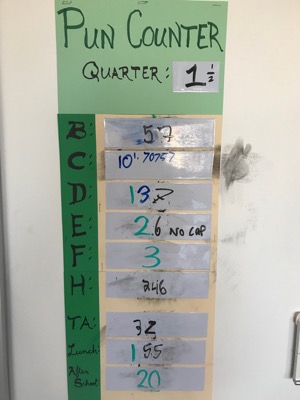 PUN COUNTER
QUARTER: 1 1/2
B: 57
C:
D: 13
E: 26 NO CAP
F: 3
H: 246
TA: 32
Lunch: 155
After School: 20